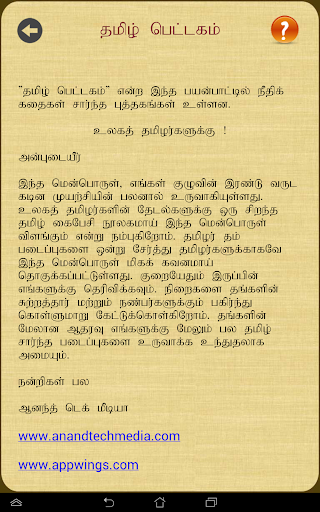 தமிழ் பெட்டகம்
?
"தமிழ் பெட்டகம்" என்ற இந்த பயன்பாட்டில் நீதிக்
கதைகள் சார்ந்த புத்தகங்கள் உள்ளன.
உலகத் தமிழர்களுக்கு !
அன்புடையீர்
இந்த மென்பொருள், எங்கள் குழுவின் இரண்டு வருட
கடின முயற்சியின் பலனால் உருவாகியுள்ளது.
உலகத் தமிழர்களின் தேடல்களுக்கு ஒரு சிறந்த
தமிழ் கைபேசி நூலகமாய் இந்த மென்பொருள்
விளங்கும் என்று நம்புகிறோம். தமிழர் தம்
படைப்புகளை ஒன்று சேர்த்து தமிழர்களுக்காகவே
இந்த மென்பொருள் மிகக் கவனமாய்
தொகுக்கப்பட்டுள்ளது. குறையேதும் இருப்பின்
எங்களுக்கு தெரிவிக்கவும். நிறைகளை தங்களின்
சுற்றத்தார் மற்றும் நண்பர்களுக்கும் பகிர்ந்து
கொள்ளுமாறு கேட்டுக்கொள்கிறோம். தங்களின்
மேலான ஆதரவு எங்களுக்கு மேலும் பல தமிழ்
சார்ந்த படைப்புகளை உருவாக்க உந்துதலாக
அமையும்.
நன்றிகள் பல
ஆனந்த் டெக் மீடியா
www.anandtechmedia.com
www.appwings.com